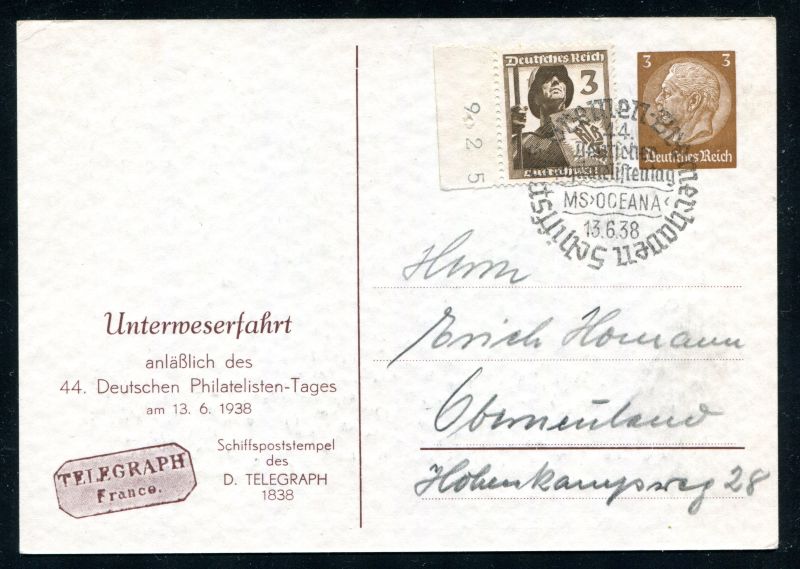 Unterweserfahrt
anläßlich des
44. Deutschen Philatelisten-Tages
am 13. 6. 1938
Schiffspoststempel
des
D. TELEGRAPH
1838
TELEGRAPH
Franco.
Deutsches Reich
3
9 2 5
3 3
Deutsches Reich
Bremen-Bremerhaven Schiffspost
44.
Deutscher
Philatelistentag
MS›OCEANA‹
13.6.38
Herrn
Erich Homann
Oberneuland
Hohenkampsweg 28